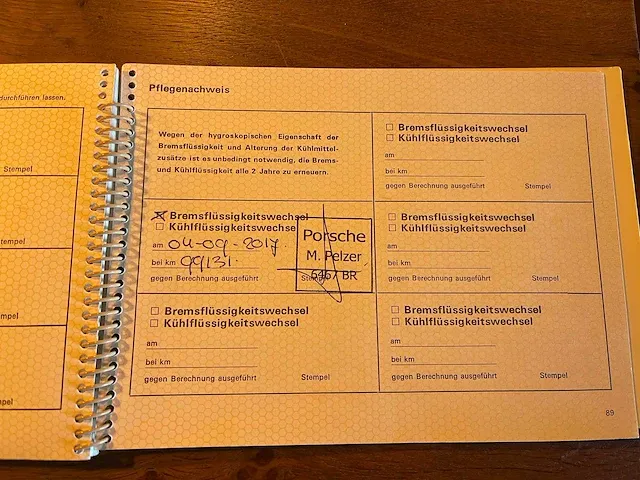 durchführen lassen.
Stempel
Stempel
mpel
mpel
Pflegenachweis
Wegen der hygroskopischen Eigenschaft der
Bremsflüssigkeit und Alterung der Kühlmittel-
zusätze ist es unbedingt notwendig, die Brems-
und Kühlflüssigkeit alle 2 Jahre zu erneuern.
Bremsflüssigkeitswechsel
Kühlflüssigkeitswechsel
am
bei km
gegen Berechnung ausgeführt Stempel
Bremsflüssigkeitswechsel
Kühlflüssigkeitswechsel
am 04-09-2017.
bei km 99131.
gegen Berechnung ausgeführt Stempel
Porsche
M. Pelzer
BR
Bremsflüssigkeitswechsel
Kühlflüssigkeitswechsel
am
bei km
gegen Berechnung ausgeführt Stempel
Bremsflüssigkeitswechsel
Kühlflüssigkeitswechsel
am
bei km
gegen Berechnung ausgeführt Stempel
Bremsflüssigkeitswechsel
Kühlflüssigkeitswechsel
am
bei km
gegen Berechnung ausgeführt Stempel
89